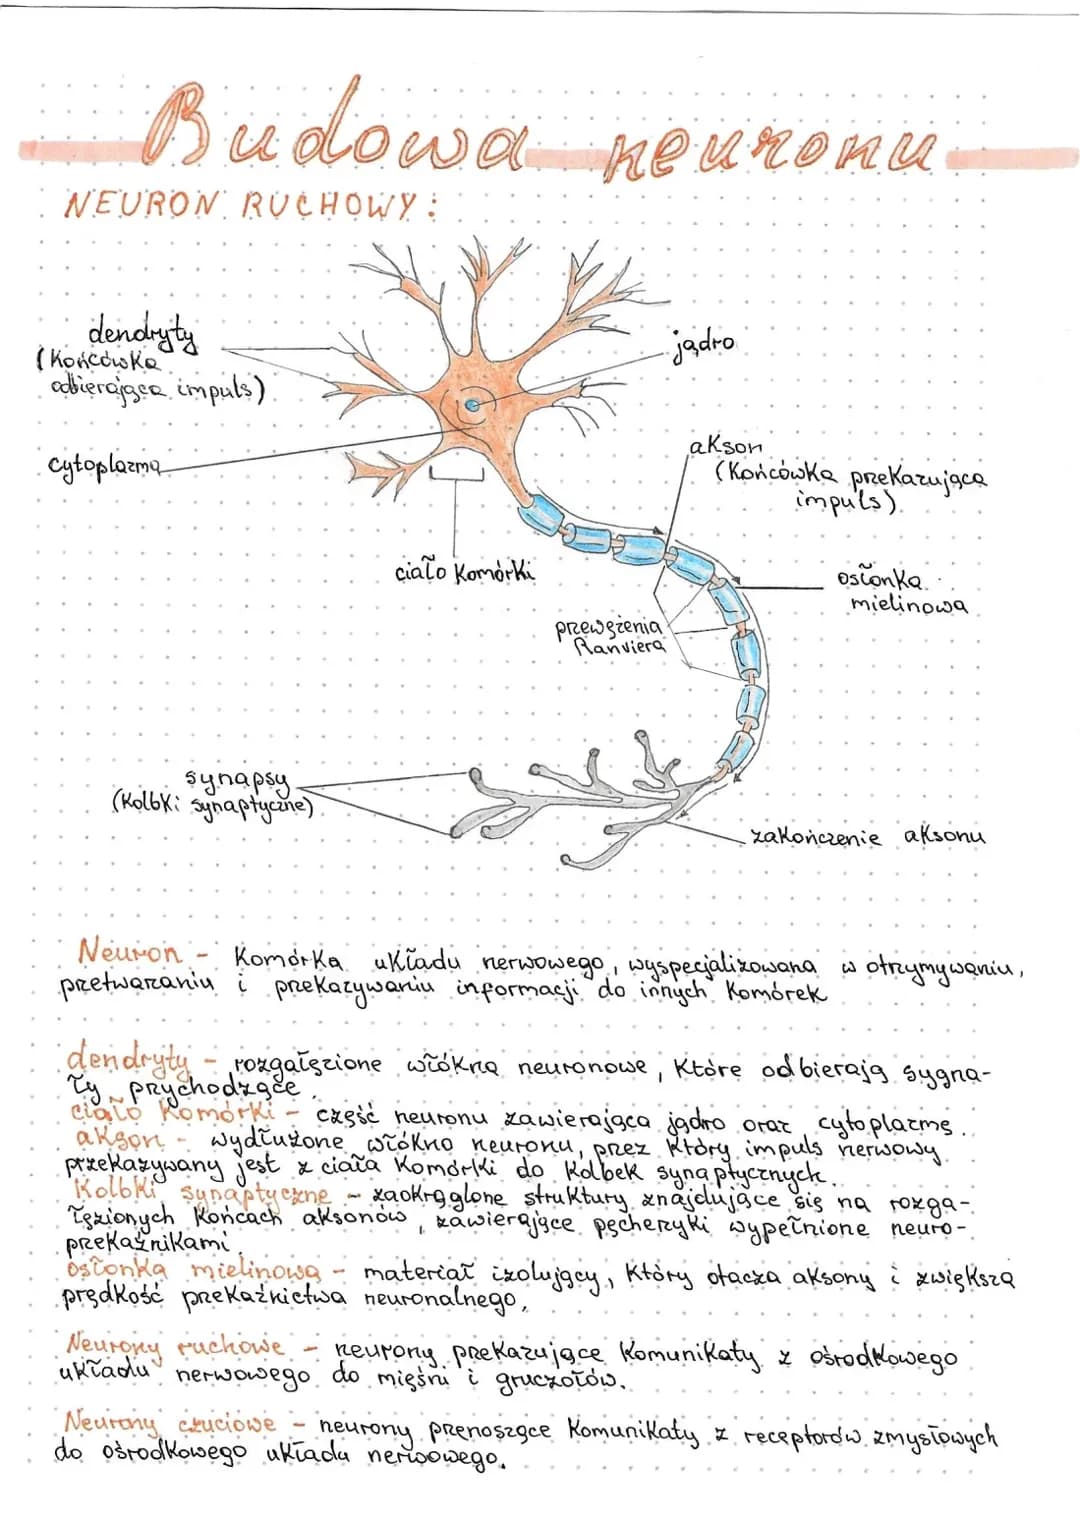 Budowa neuronu
NEURON RUCHOWY:
dendryty
(Końcówka
odbierająca impuls)
jądro
cytoplazma
akson
(Końcówka przekazująca
impuls)
ciało Komórki
osłonka
mielinowa
przewężenia
Ranviera
synapsy
(Kolbki synaptyczne)
zakończenie aksonu
Neuron - Komórka układu nerwowego, wyspecjalizowana w otrzymywaniu,
przetwarzaniu i przekazywaniu informacji do innych Komórek
dendryty - rozgałęzione włókna neuronowe, Które odbierają sygna-
ły przychodzące.
ciało Komórki - część neuronu zawierająca jądro oraz cytoplazmę.
akson - wydłużone włókno neuronu, przez Który impuls nerwowy
przekazywany jest z ciała Komórki do Kolbek synaptycznych.
Kolbki synaptyczne - zaokrąglone struktury znajdujące się na rozga-
łęzionych Końcach aksonów, zawierające pęcherzyki wypełnione neuro-
przekaźnikami.
osłonka mielinowa - materiał izolujący, Który otacza aksony i zwiększa
prędkość przekaźnictwa neuronalnego,
Neurony ruchowe - neurony przekazujące Komunikaty z ośrodkowego
układu nerwowego do mięśni i gruczołów.
Neurony czuciowe - neurony przenoszące Komunikaty z receptorów zmysłowych
do ośrodkowego układu nerwowego.